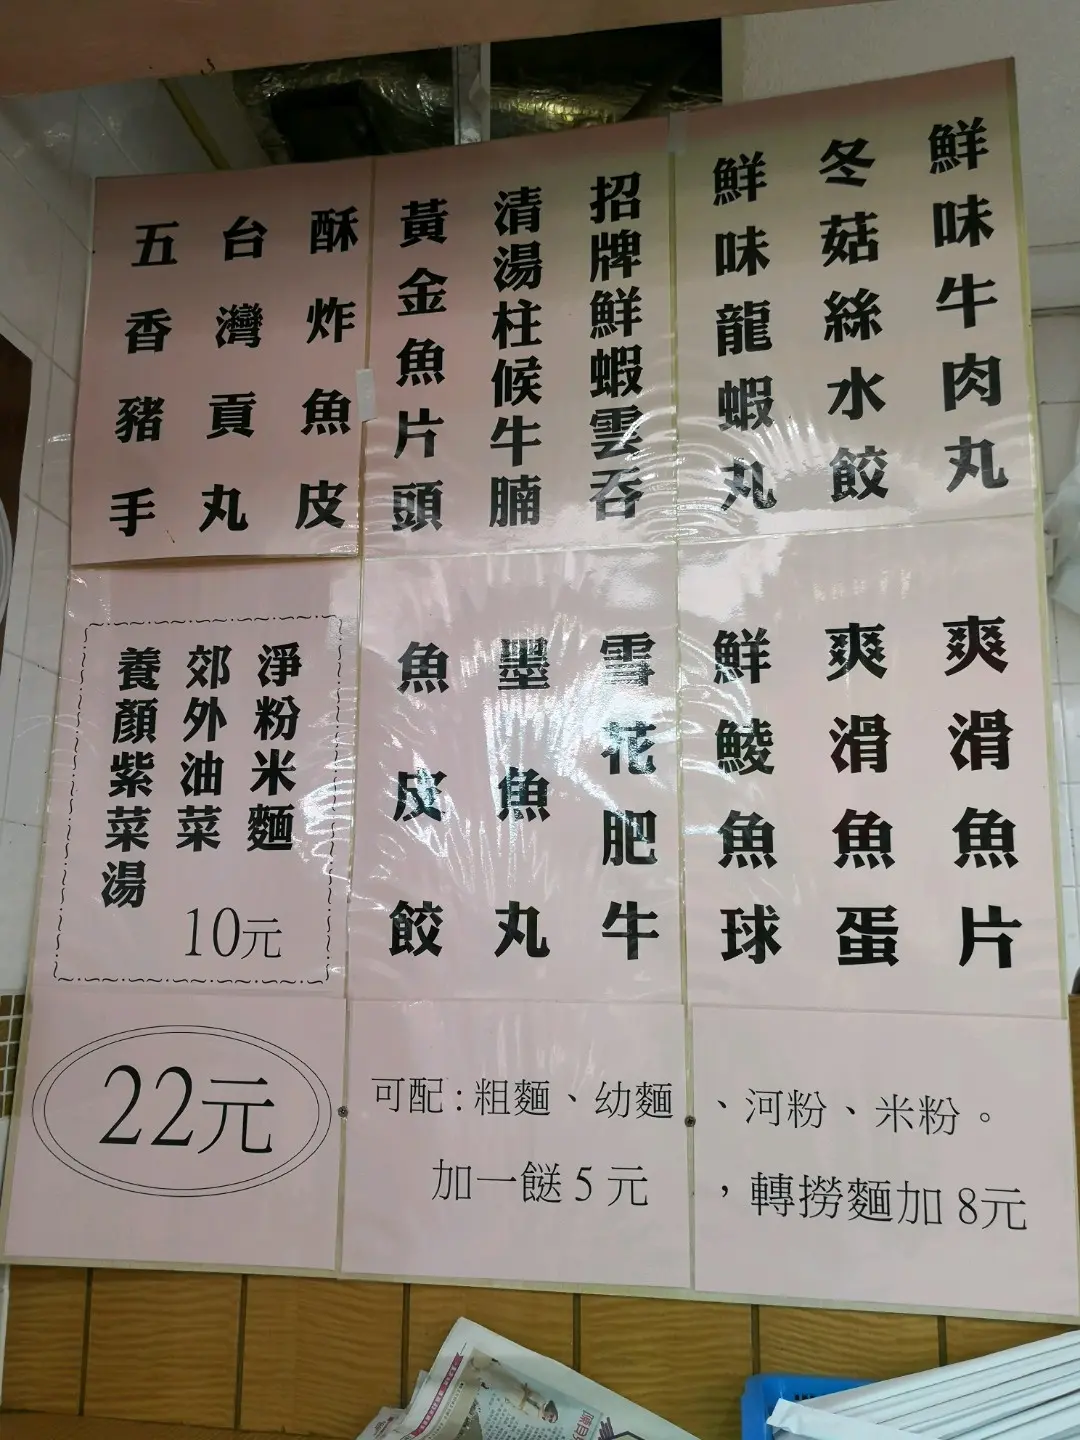 鮮味牛肉丸
冬菇絲水餃
鮮味龍蝦丸
招牌鮮蝦雲吞
清湯柱候牛腩
黃金魚片頭
酥炸魚皮
台灣貢丸
五香豬手
爽滑魚片
爽滑魚蛋
鮮鯪魚球
雪花肥牛
墨魚丸
魚皮餃
淨粉米麵
郊外油菜
養顏紫菜湯
10元
22元
可配:粗麵、幼麵、河粉、米粉。
加一餸5元,轉撈麵加8元